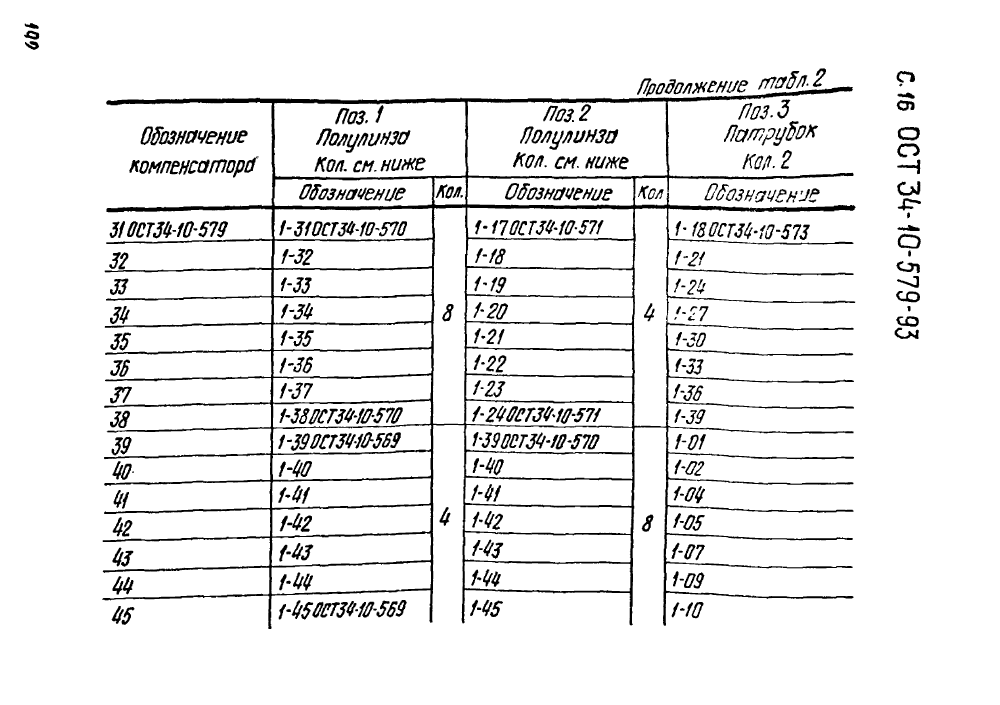 199
С.16 ОСТ 34-10-579-93
Продолжение табл. 2
Обозначение компенсатора | Поз. 1 Полулинза Кол. см. ниже | Поз. 2 Полулинза Кол. см. ниже | Поз. 3 Патрубок Кол. 2
Обозначение | Кол. | Обозначение | Кол | Обозначение
31 ОСТ34-10-579 | 1-31 ОСТ34-10-570 | 8 | 1-17 ОСТ34-10-571 | 4 | 1-18 ОСТ34-10-573
32 | 1-32 | 1-18 | 1-21
33 | 1-33 | 1-19 | 1-24
34 | 1-34 | 1-20 | 1-27
35 | 1-35 | 1-21 | 1-30
36 | 1-36 | 1-22 | 1-33
37 | 1-37 | 1-23 | 1-36
38 | 1-38 ОСТ34-10-570 | 1-24 ОСТ34-10-571 | 1-39
39 | 1-39 ОСТ34-10-569 | 4 | 1-39 ОСТ34-10-570 | 8 | 1-01
40 | 1-40 | 1-40 | 1-02
41 | 1-41 | 1-41 | 1-04
42 | 1-42 | 1-42 | 1-05
43 | 1-43 | 1-43 | 1-07
44 | 1-44 | 1-44 | 1-09
45 | 1-45 ОСТ34-10-569 | 1-45 | 1-10